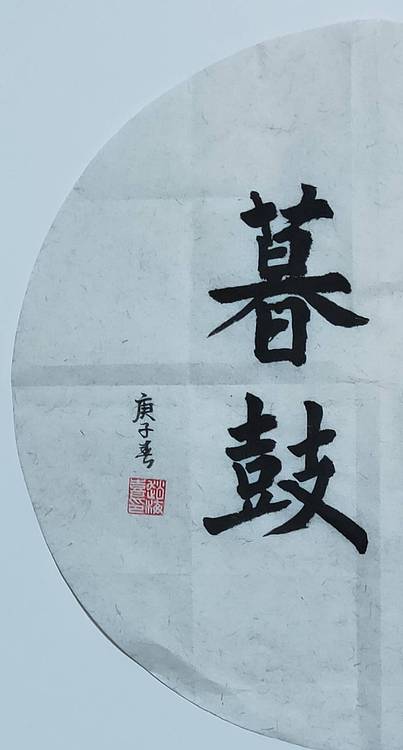 暮鼓
庚子春